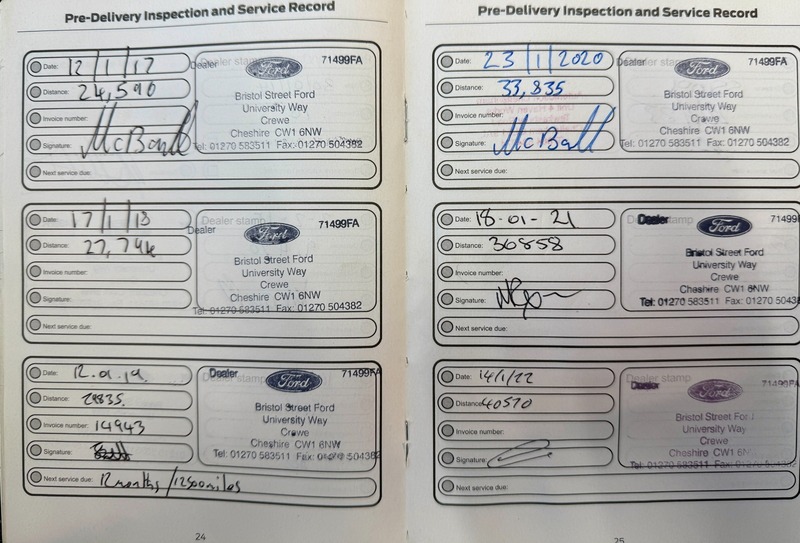 Pre-Delivery Inspection and Service Record
Date: 12/1/17
Distance: 24,590
Invoice number:
Signature: McBall
Next service due:
Dealer stamp
Dealer
Ford
71499FA
Bristol Street Ford
University Way
Crewe
Cheshire CW1 6NW
Tel: 01270 583511 Fax: 01270 504382
Date: 17/1/18
Distance: 27,744
Invoice number:
Signature:
Next service due:
Dealer stamp
Dealer
Ford
71499FA
Bristol Street Ford
University Way
Crewe
Cheshire CW1 6NW
Tel: 01270 583511 Fax: 01270 504382
Date: 12.01.19.
Distance: 29835.
Invoice number: 14943
Signature:
Next service due: 12months/12500miles
Dealer stamp
Dealer
Ford
71499FA
Bristol Street Ford
University Way
Crewe
Cheshire CW1 6NW
Tel: 01270 583511 Fax: 01270 504382
24
Pre-Delivery Inspection and Service Record
Date: 23/1/2020
Distance: 33,835
Invoice number:
Signature: McBall
Next service due:
Dealer stamp
Dealer
Ford
71499FA
Bristol Street Ford
University Way
Crewe
Cheshire CW1 6NW
Tel: 01270 583511 Fax: 01270 504382
Date: 18-01-21
Distance: 36858
Invoice number:
Signature:
Next service due:
Dealer stamp
Dealer
Ford
71499
Bristol Street Ford
University Way
Crewe
Cheshire CW1 6NW
Tel: 01270 583511 Fax: 01270 50438
Date: 14/1/22
Distance: 40570
Invoice number:
Signature:
Next service due:
Dealer stamp
Dealer
Ford
71499FA
Bristol Street For
University Way
Crewe
Cheshire CW1 6
Tel: 01270 583511 Fax: 01270 504382
25